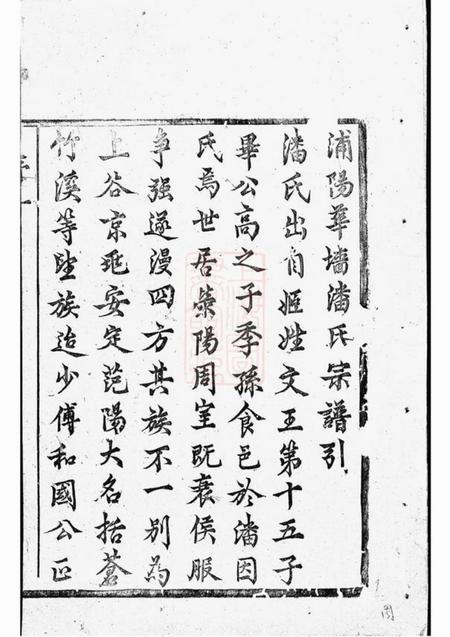 浦陽華墻潘氏宗譜引
潘氏出自姬姓文王第十五子
畢公高之子季孫食邑於潘因
氏焉世居滎陽周室既衰侯服
争強遂漫四方其族不一別為
上谷京兆安定范陽大名括蒼
竹溪等望族迨少傅和國公正